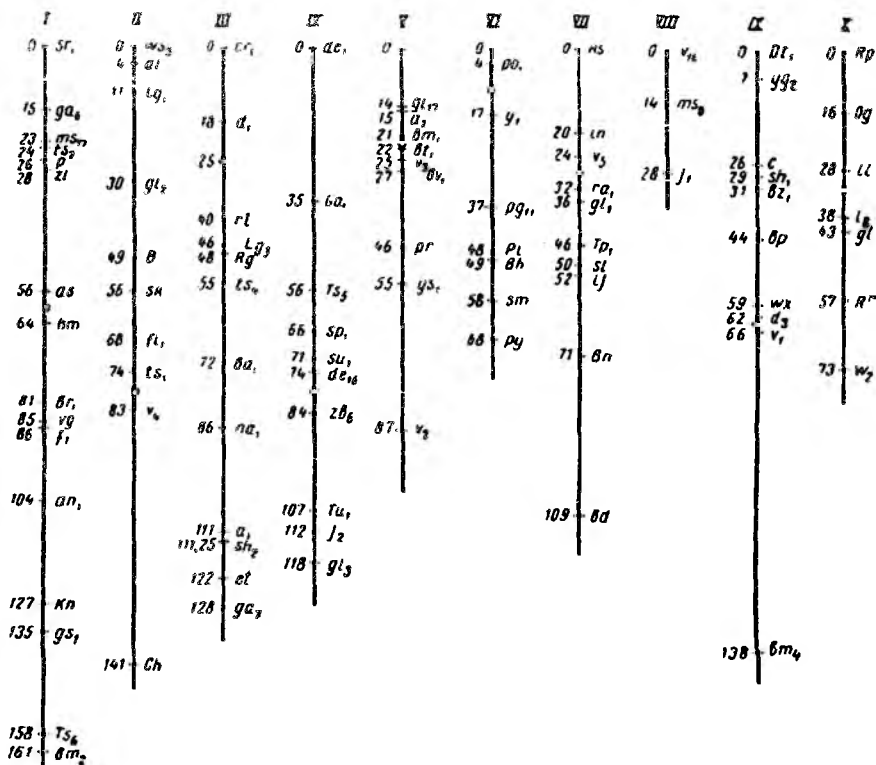 I II III IX V VI VII VIII IX X
0 sr₁
15 ga₆
23 ms₁₇
24 ts₂
26 P
28 zl
56 as
64 hm
81 br₁
85 vg
86 f₁
104 an₁
127 Kn
135 gs₁
158 Ts₆
161 bm₂
0
4 al
11 lg₁
30 gl₂
49 B
56 sk
68 fl₁
74 ts₁
83 v₄
141 Ch
0 cr₁
18 d₁
25
40 rt
46 Lg₃
48 Rg
55 ts₄
72 ba₁
86 na₁
111 a₁
111,25 sh₂
122 et
128 ga₇
0 de₁
35 Ga₁
56 Ts₅
66 sp₁
71 su₁
74 de₁₆
84 zb₆
107 Tu₁
112 j₂
118 gl₃
0
14 gl₁₇
15 a₂
21 bm₁
22 bt₁
23 v₃
27 bv₁
46 pr
55 ys₁
87 v₂
0
4 po₁
17 y₁
37 pg₁₁
48 Pl
49 Bh
58 sm
68 py
0 Hs
20 in
24 v₅
32 ra₁
36 gl₁
46 Tp₁
50 sl
52 ij
71 Bn
109 Bd
0 v₁₆
14 ms₈
28 j₁
0 Dt₁
7 yg₂
26 C
29 sh₁
31 bz₁
44 bp
59 wx
62 d₃
66 v₁
138 bm₄
0 Rp
16 Og
28 li
38 l₈
43 gl
57 Rʳ
73 w₂